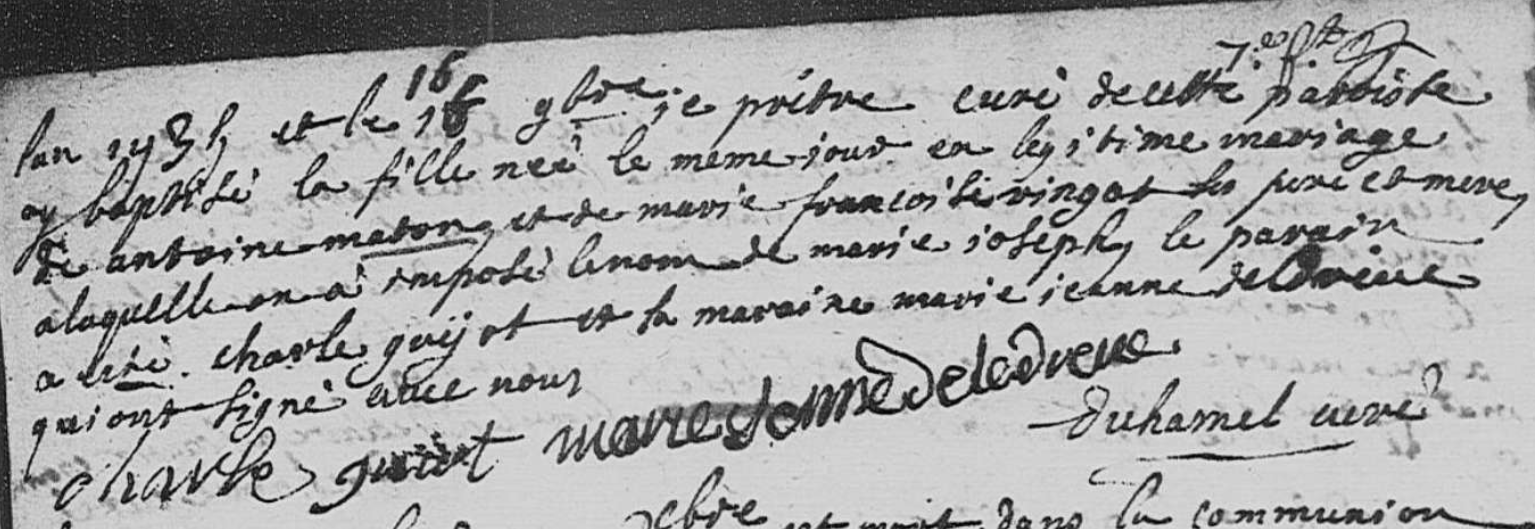 7.e f.t
lan 1735 et le 16 16 9bre ie prêtre curé de cette paroisse
ay baptisé la fille neé le meme jour en legitime mariage
de antoine maton et de marie francoise vingat ses pere et mere,
a laquelle on a imposé le nom de marie ioseph, le parain
a eté charle guyot et la maraine marie ieanne deledreue
qui ont signé avec nous
charle guiot marie Jenne deledreue
duhamel curé
est mort dans la communion